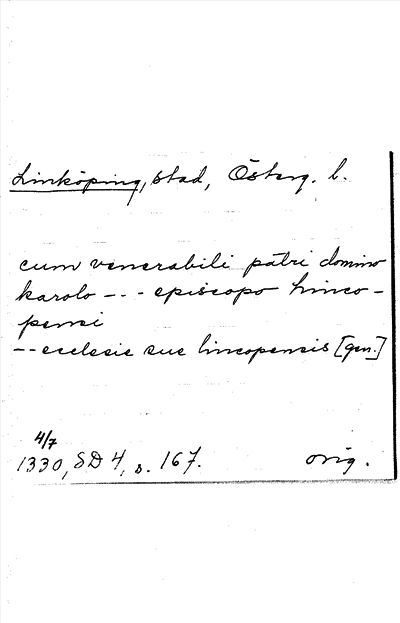 Linköping, stad, Österg. l.
cum venerabili patri domino
karolo --- episcopo linco-
pensi
-- ecclesie sue lincopensis [gen.]
4/7
1330, SD 4, s. 167. orig.